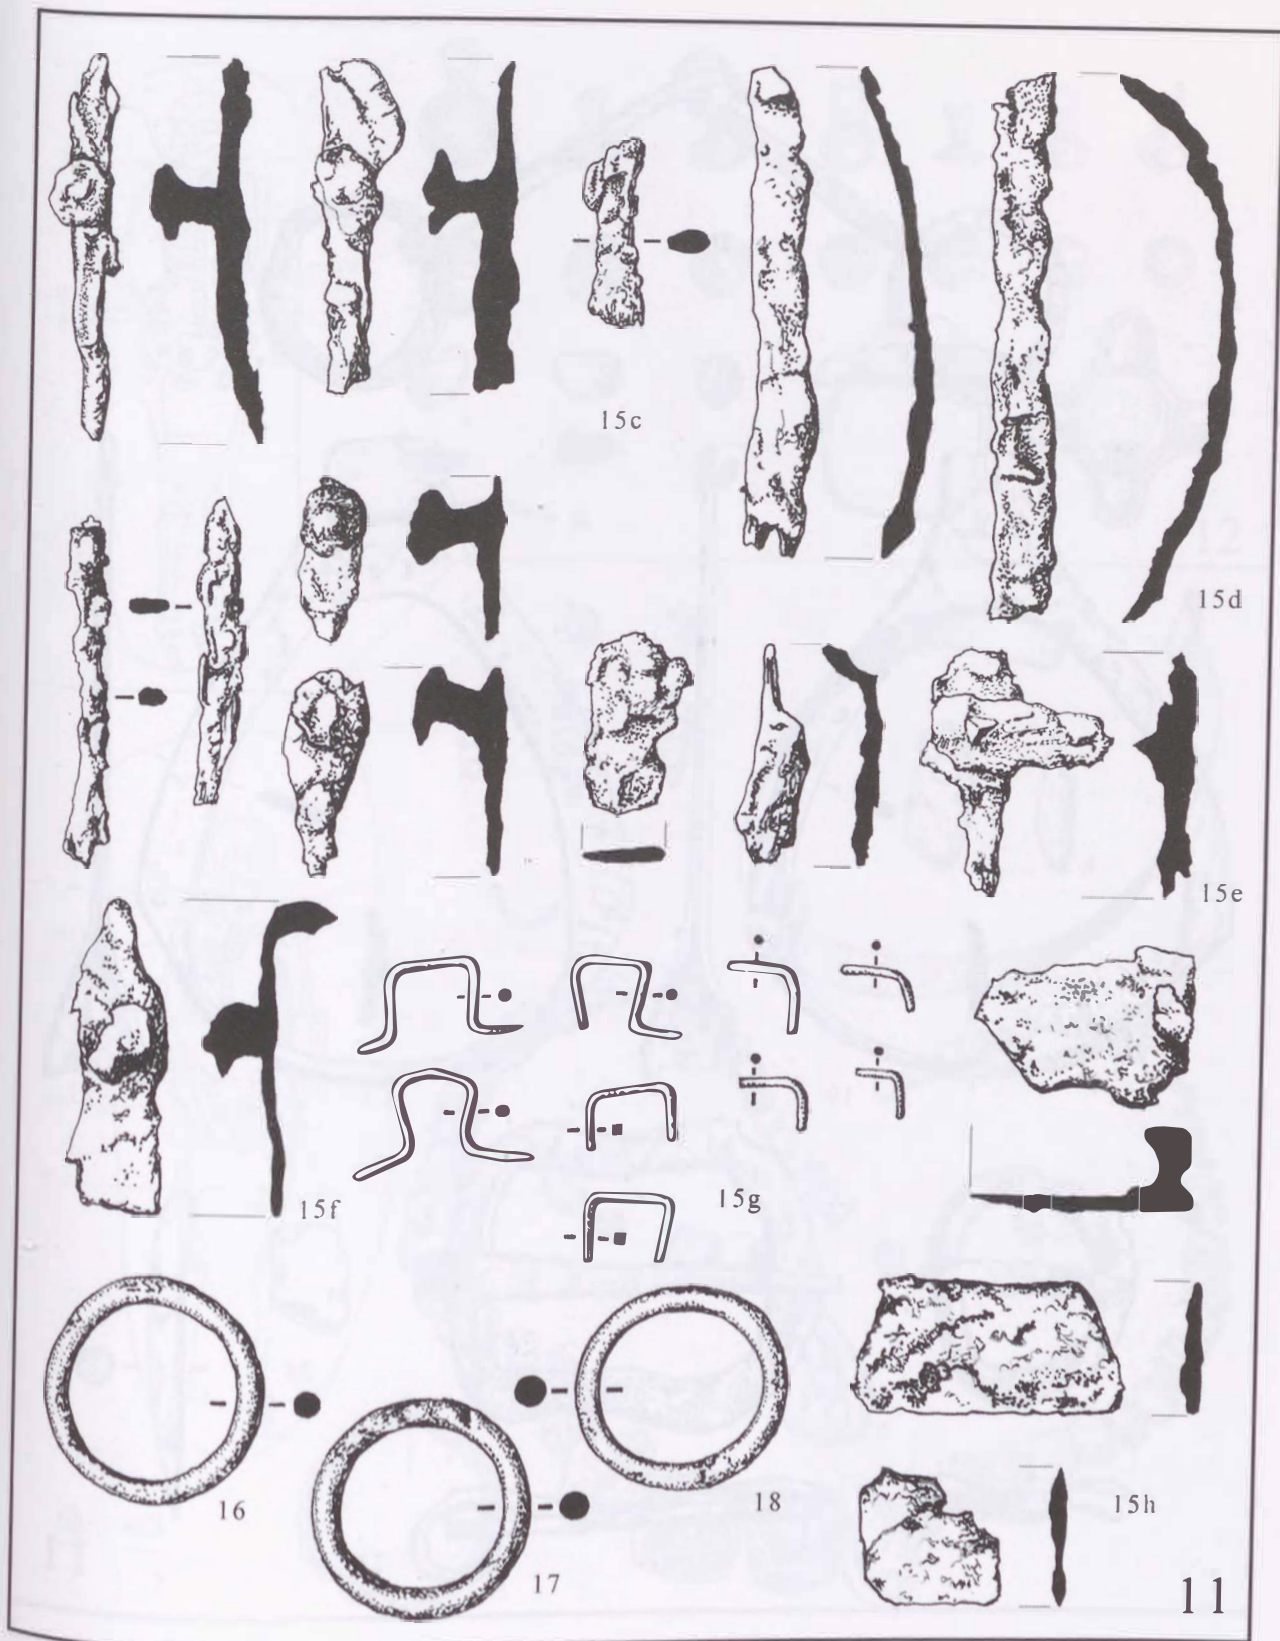 15c
15d
15e
15f
15g
16
18
15h
17
11